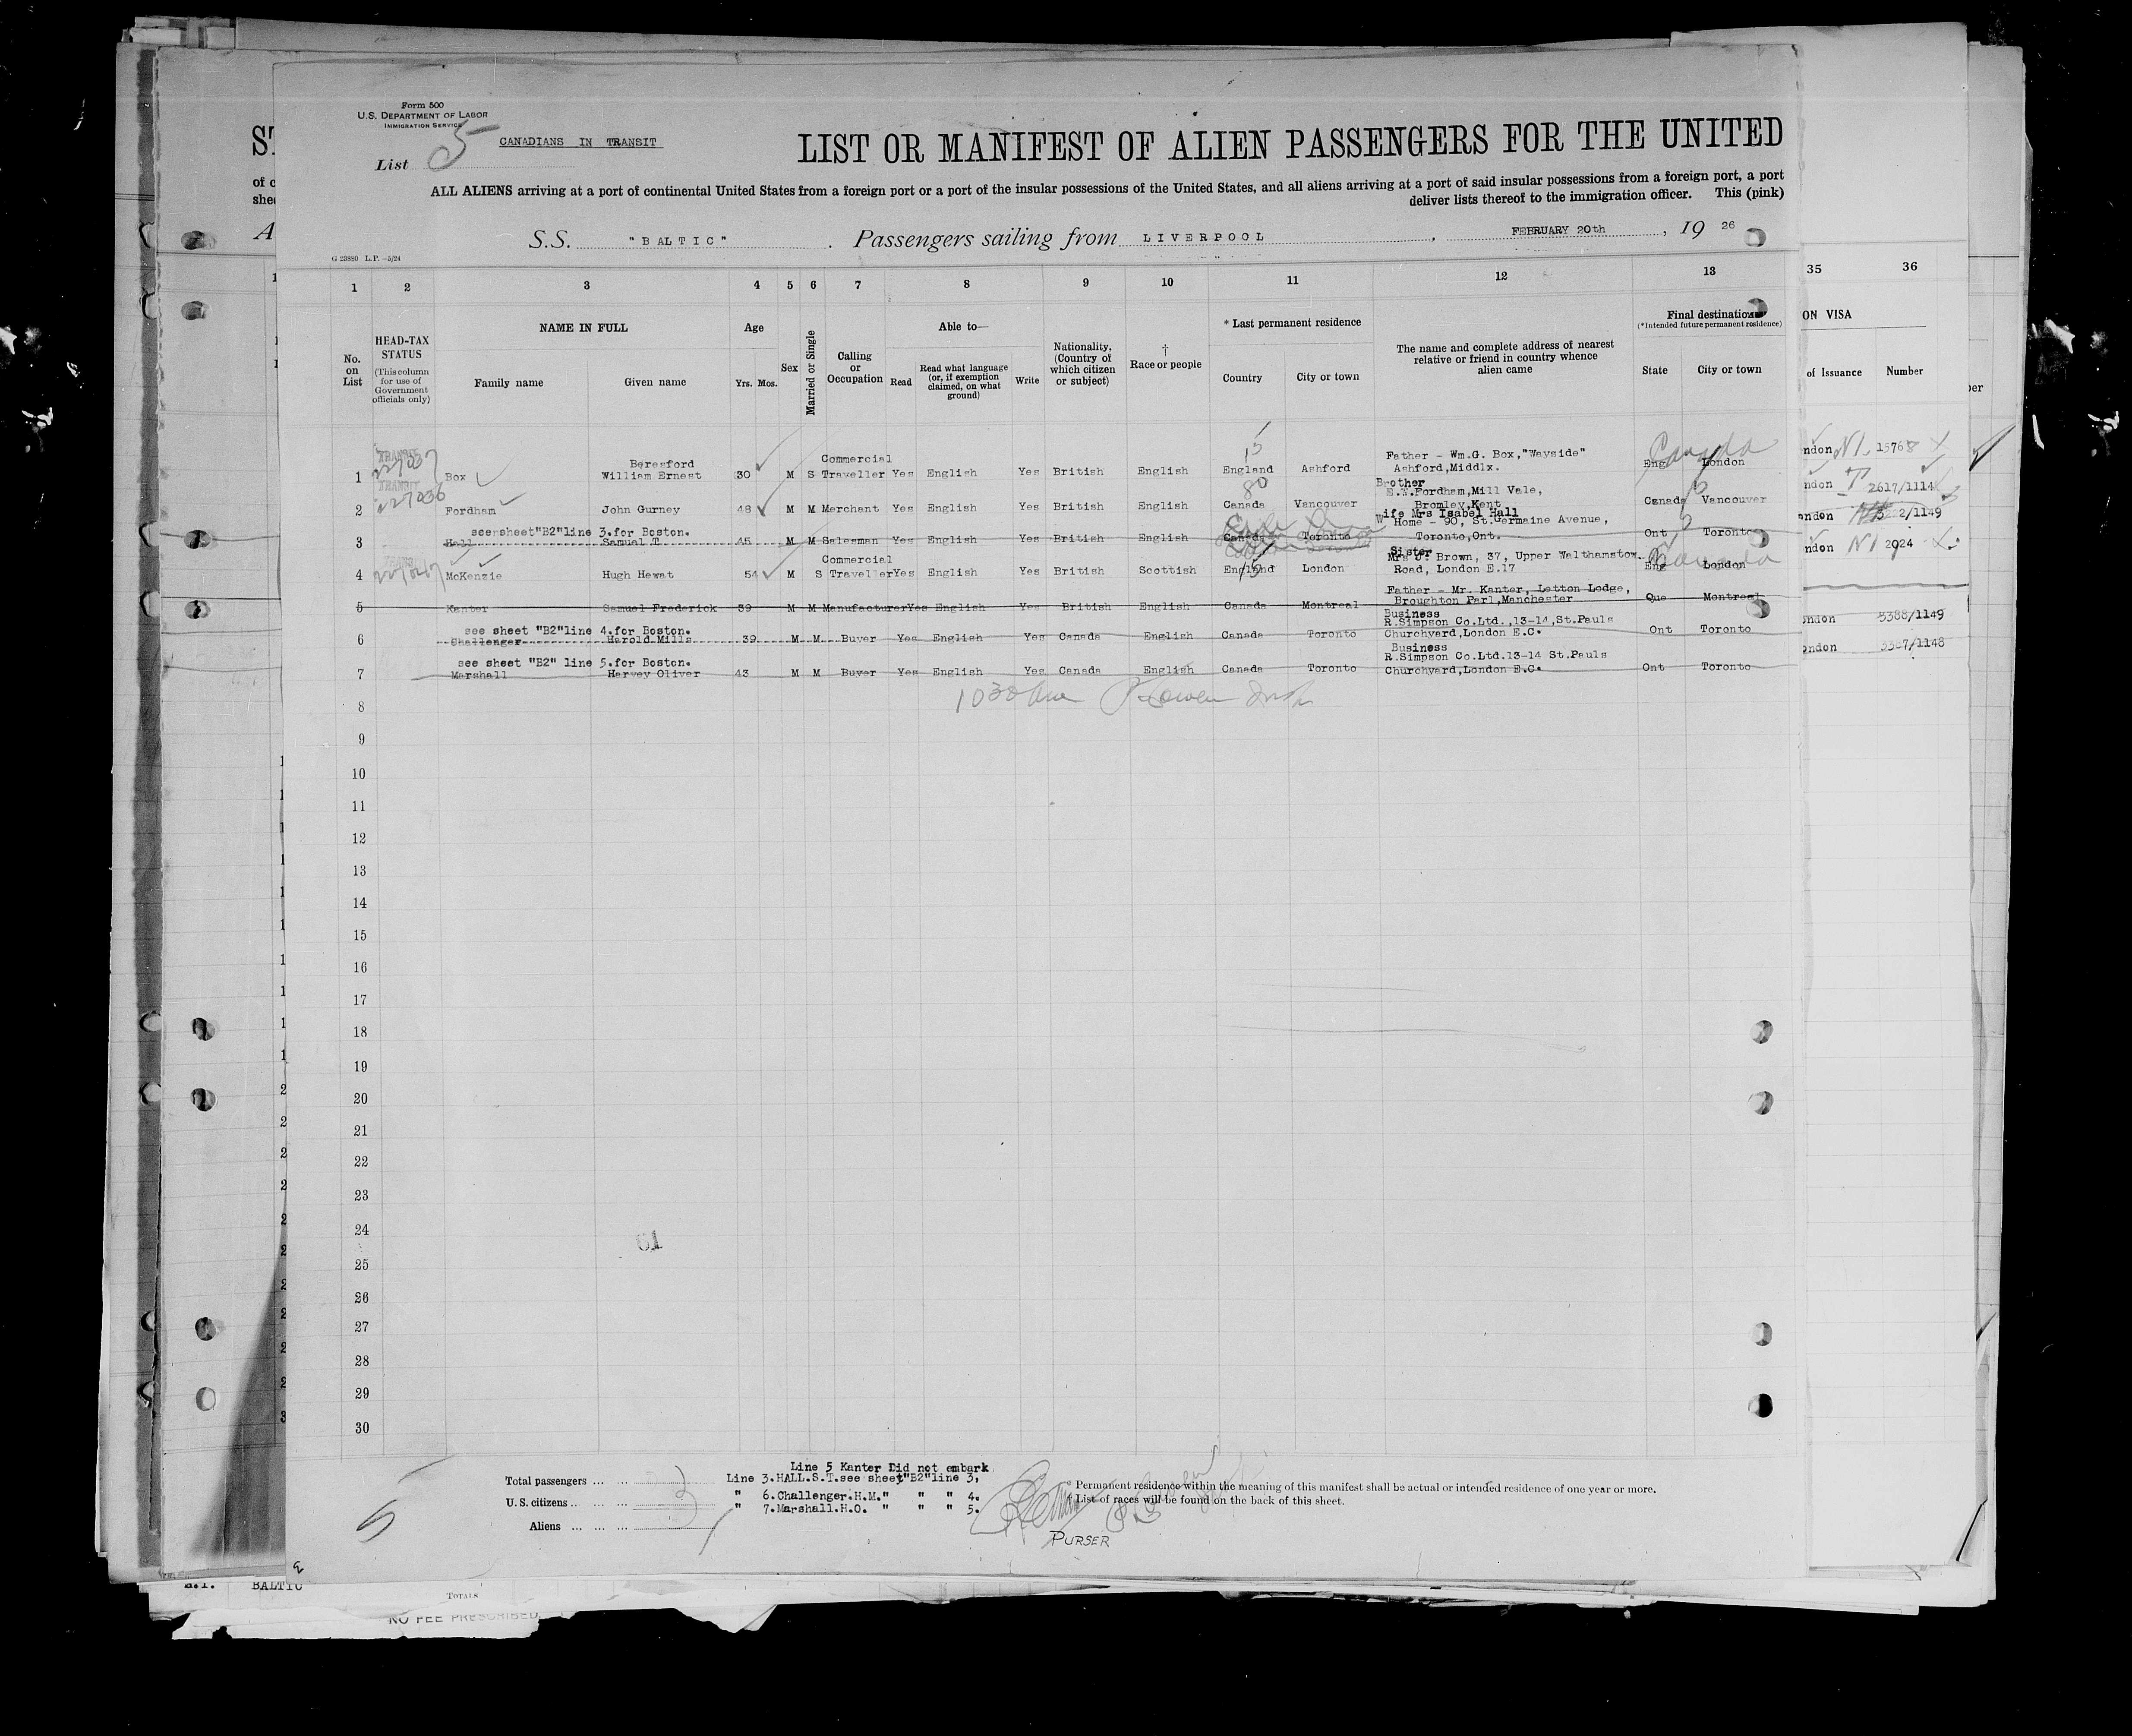 Form 500
U.S. DEPARTMENT OF LABOR
IMMIGRATION SERVICE
CANADIANS IN TRANSIT
List 5
LIST OR MANIFEST OF ALIEN PASSENGERS FOR THE UNITED
ALL ALIENS arriving at a port of continental United States from a foreign port or a port of the insular possessions of the United States, and all aliens arriving at a port of said insular possessions from a foreign port, a port
deliver lists thereof to the immigration officer. This (pink)
S.S. "BALTIC" . Passengers sailing from LIVERPOOL , FEBRUARY 20th , 19 26
G 23880 L.P.—5/24
1 2 3 4 5 6 7 8 9 10 11 12 13 35 36
No. on List
HEAD-TAX STATUS
(This column for use of Government officials only)
NAME IN FULL
Family name Given name
Age
Yrs. Mos.
Sex
Married or Single
Calling or Occupation
Able to—
Read Read what language (or, if exemption claimed, on what ground) Write
Nationality, (Country of which citizen or subject)
† Race or people
* Last permanent residence
Country City or town
The name and complete address of nearest relative or friend in country whence alien came
Final destination
(*Intended future permanent residence)
State City or town
ON VISA
of Issuance Number
TRANSIT
1 Box Beresford William Ernest 30 M S Commercial Traveller Yes English Yes British English England Ashford Father - Wm.G. Box,"Wayside" Ashford,Middlx. Eng London Canada ndon 15768
TRANSIT
2 Fordham John Gurney 48 M M Merchant Yes English Yes British English Canada Vancouver Brother E.W.Fordham,Mill Vale, Bromley,Kent Canada Vancouver ndon 2617/1114
see sheet"B2"line 3.for Boston.
3 Hall Samuel T 45 M M Salesman Yes English Yes British English Canada Toronto Wife Mrs Isabel Hall Home - 90, St.Germaine Avenue, Toronto,Ont. Ont Toronto ondon /1149
TRANSIT
4 McKenzie Hugh Hewat 54 M S Commercial Traveller Yes English Yes British Scottish England London Sister Mrs J. Brown, 37, Upper Walthamstow Road, London E.17 Eng London Canada ndon 2024
5 Kanter Samuel Frederick 39 M M Manufacturer Yes English Yes British English Canada Montreal Father - Mr. Kanter, Letton Lodge, Broughton Parl,Manchester Que Montreal
see sheet "B2"line 4.for Boston.
6 Challenger Harold Mills 39 M M Buyer Yes English Yes Canada English Canada Toronto Business R.Simpson Co.Ltd.,13-14,St.Pauls Churchyard,London E.C. Ont Toronto ondon 5388/1149
see sheet "B2" line 5.for Boston.
7 Marshall Harvey Oliver 43 M M Buyer Yes English Yes Canada English Canada Toronto Business R.Simpson Co.Ltd.13-14 St.Pauls Churchyard,London E.C. Ont Toronto ondon /1148
8
9
10
11
12
13
14
15
16
17
18
19
20
21
22
23
24
25
26
27
28
29
30
61
Total passengers ... ...
U.S. citizens ... ...
Aliens ... ... ...
3
5
Line 5 Kanter Did not embark
Line 3.HALL.S.T.see sheet"B2"line 3,
" 6.Challenger.H.M." " " 4.
" 7.Marshall.H.O. " " " 5.
PURSER
* Permanent residence within the meaning of this manifest shall be actual or intended residence of one year or more.
List of races will be found on the back of this sheet.
BALTIC
TOTALS
NO FEE PRESCRIBED